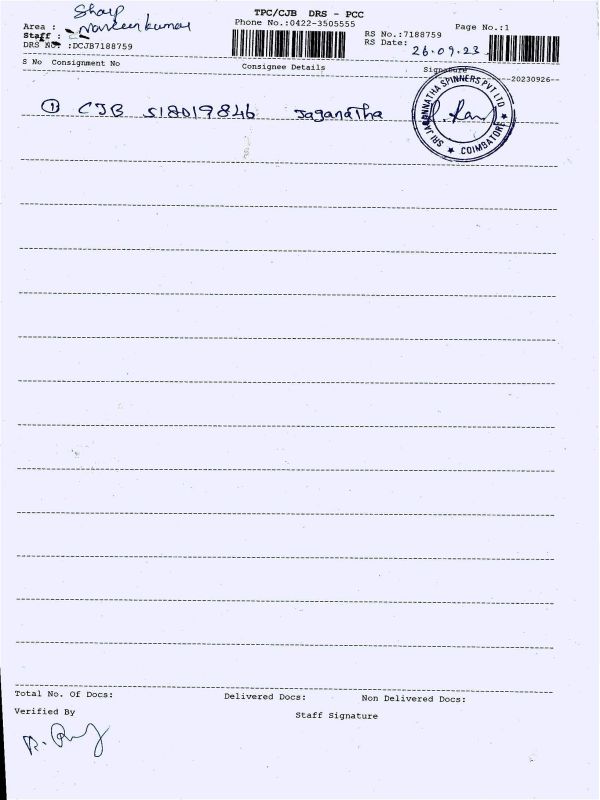 TPC/CJB DRS - PCC
Phone No.:0422-3505555
Page No.:1
Area : Sharp
Staff : Naveenkumar
DRS NO. :DCJB7188759
RS No.:7188759
RS Date: 26.09.23
S No Consignment No Consignee Details Signature
20230926
① CJB 518019846 Jaganatha
SRI JAGANNATHA SPINNERS PVT LTD
★ COIMBATORE ★
Total No. Of Docs: Delivered Docs: Non Delivered Docs:
Verified By Staff Signature